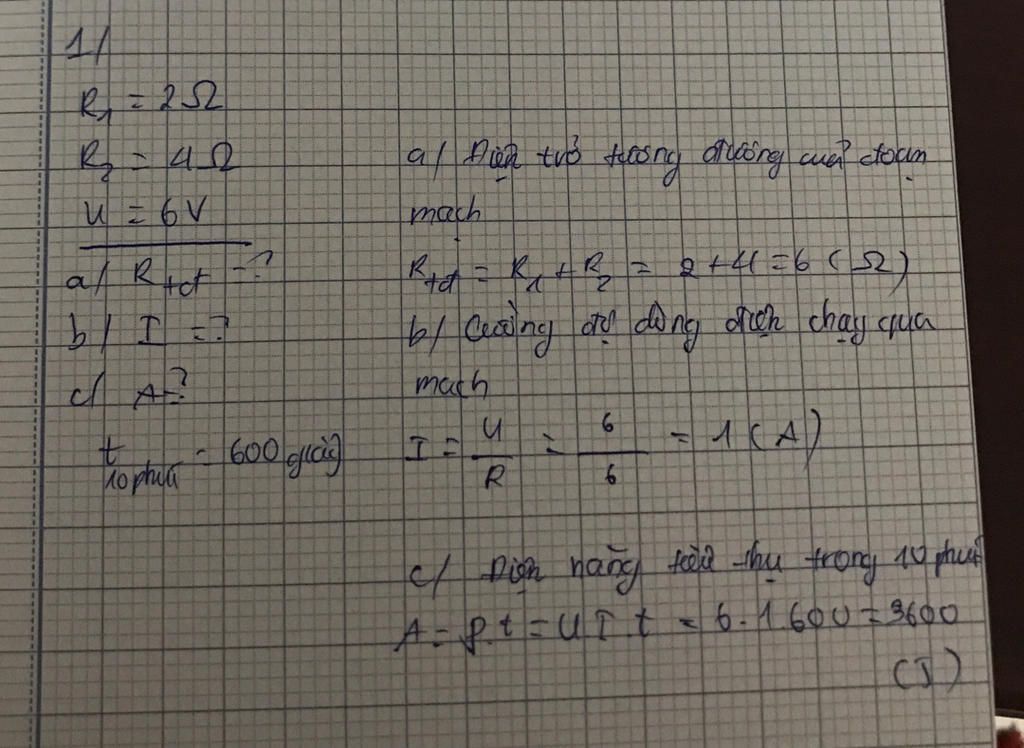 1/
R₁ = 2Ω
R₂ = 4Ω
U = 6V
a/ Rtđ = ?
b/ I = ?
c/ A = ?
t 10 phút = 600 giây
a/ Điện trở tương đương của đoạn
mạch
Rtđ = R₁ + R₂ = 2 + 4 = 6 (Ω)
b/ Cường độ dòng điện chạy qua
mạch
I = U/R = 6/6 = 1 (A)
c/ Điện năng tiêu thụ trong 10 phút
A = P.t = U I.t = 6.1.600 = 3600
(J)